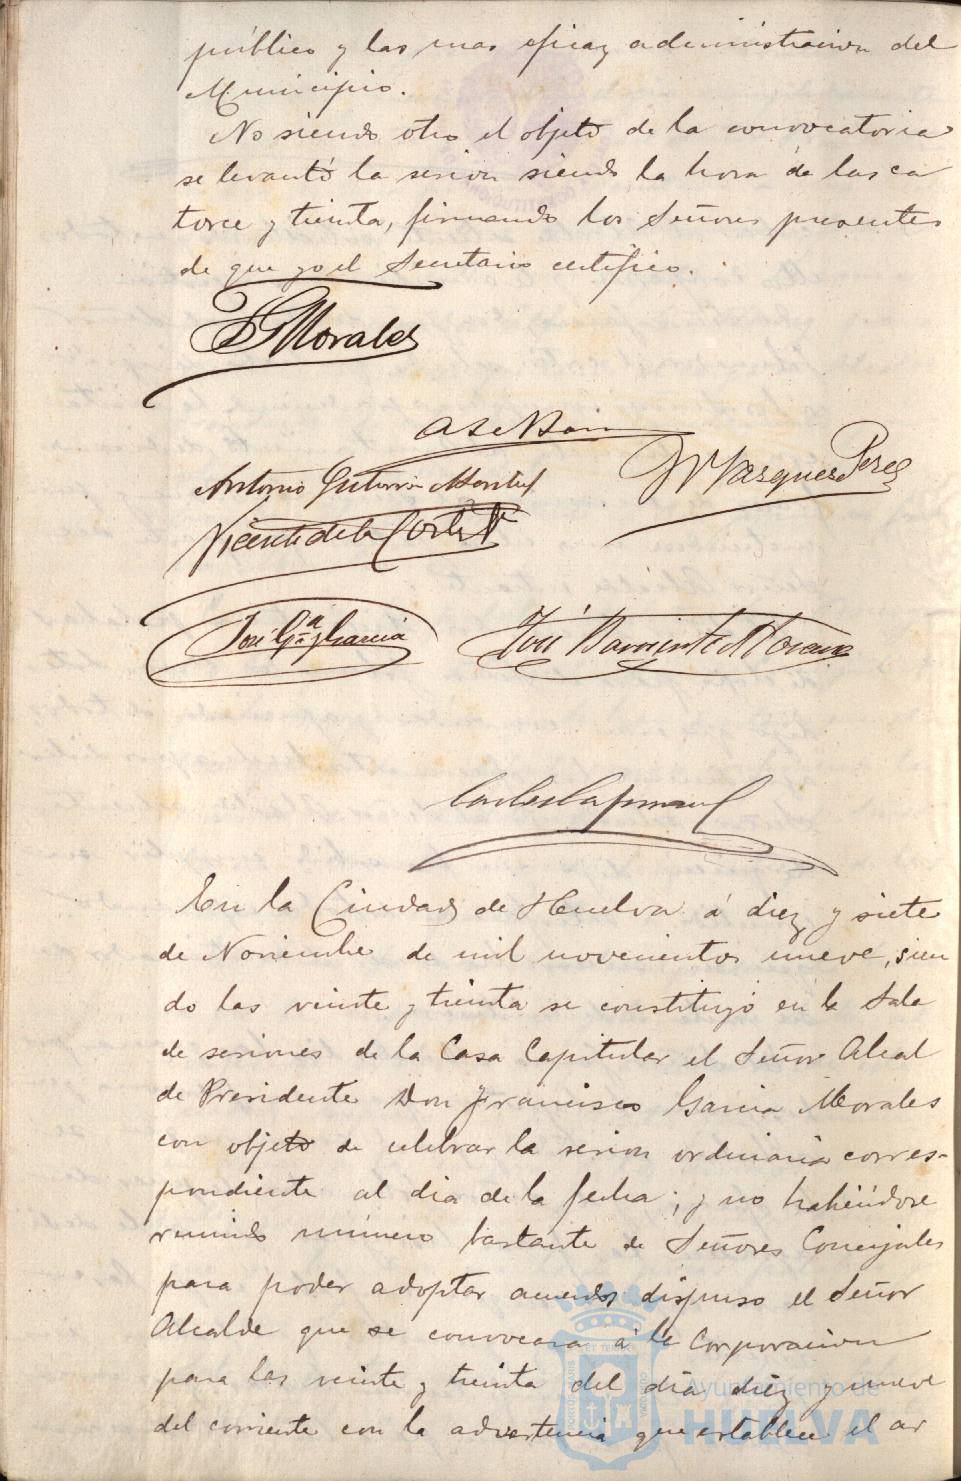 público y las mas eficaz administracion del
Municipio.
No siendo otro el objeto de la convocatoria
se levantó la sesion siendo la hora de las ca
torce y treinta, firmando los Señores presentes
de que yo el Secretario certifico.
Morales
Antonio Gutierrez
Vazquez Perez
Vicente de la Corte
José Gª y Garcia
José Barriente Moreno
En la Ciudad de Huelva á diez y siete
de Noviembre de mil novecientos nueve, sien
do las veinte y treinta se constituyó en la Sala
de sesiones de la Casa Capitular el Señor Alcal
de Presidente Don Francisco Garcia Morales
con objeto de celebrar la sesion ordinaria corres-
pondiente al dia de la fecha; y no habiéndose
reunido número bastante de Señores Concejales
para poder adoptar acuerdos dispuso el Señor
Alcalde que se convocara á la Corporacion
para las veinte y treinta del dia diez y nueve
del corriente con la advertencia que establece el ar
Ayuntamiento de
HUELVA